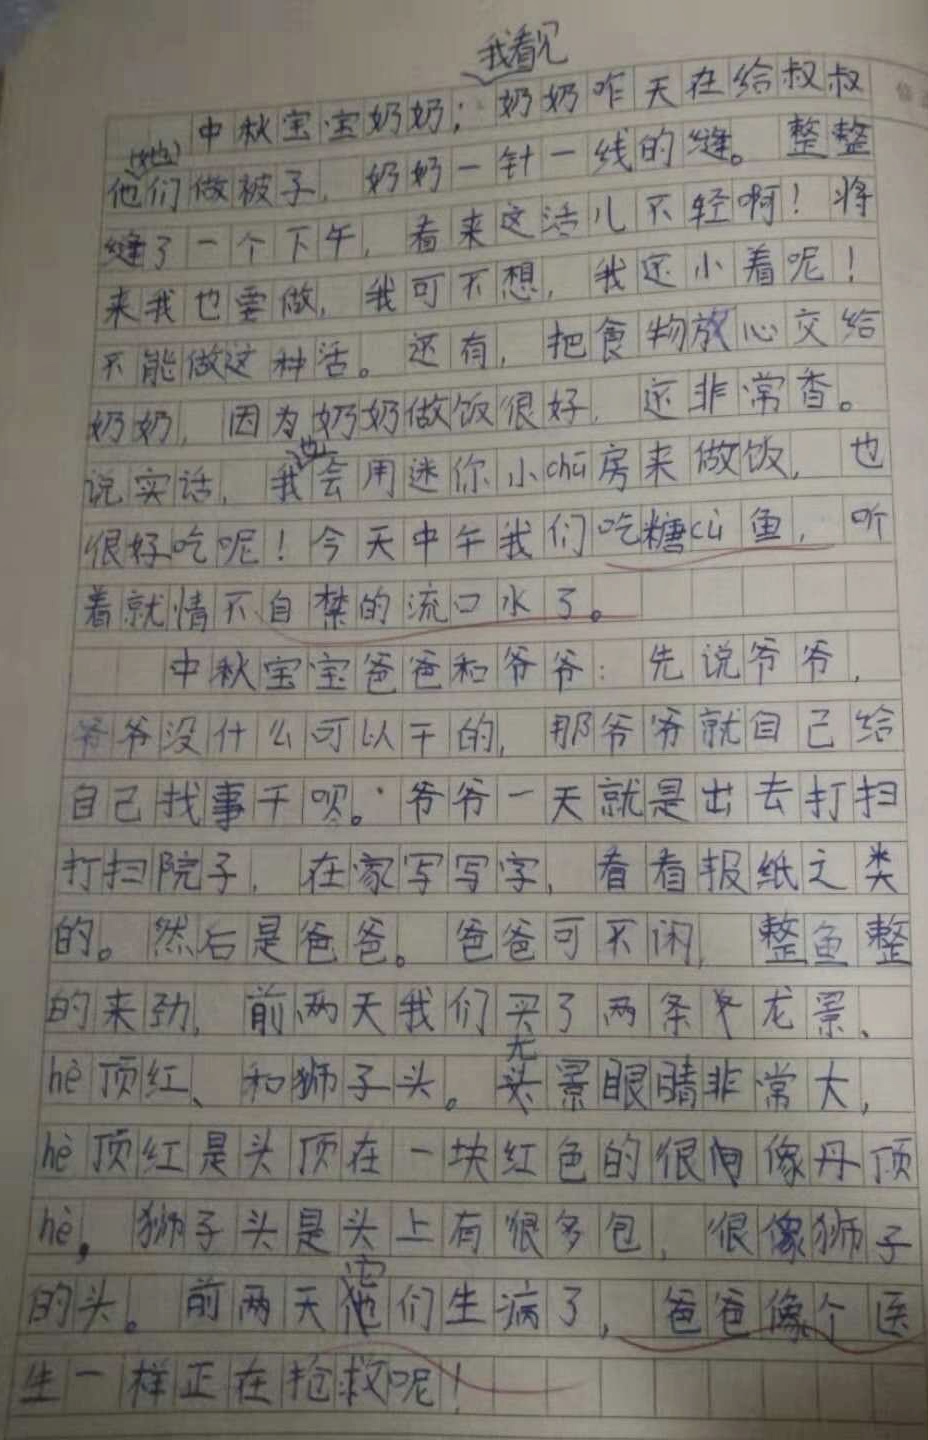 我看见
中秋宝宝奶奶：奶奶昨天在给叔叔
(她)
他们做被子，奶奶一针一线的缝。整整
缝了一个下午，看来这活儿不轻啊！将
来我也要做，我可不想，我还小着呢！
不能做这种活。还有，把食物放心交给
奶奶，因为奶奶做饭很好，还非常香。
也
说实话，我会用迷你小chú房来做饭，也
很好吃呢！今天中午我们吃糖cù鱼，听
着就情不自禁的流口水了。
中秋宝宝爸爸和爷爷：先说爷爷，
爷爷没什么可以干的，那爷爷就自己给
自己找事干呗。爷爷一天就是出去打扫
打扫院子，在家写写字，看看报纸之类
的。然后是爸爸。爸爸可不闲，整鱼整
的来劲，前两天我们买了两条龙景、
hè顶红、和狮子头。景眼睛非常大，
龙
hè顶红是头顶在一块红色的很像丹顶
hè，狮子头是头上有很多包，很像狮子
它
的头。前两天他们生病了，爸爸像个医
生一样正在抢救呢！